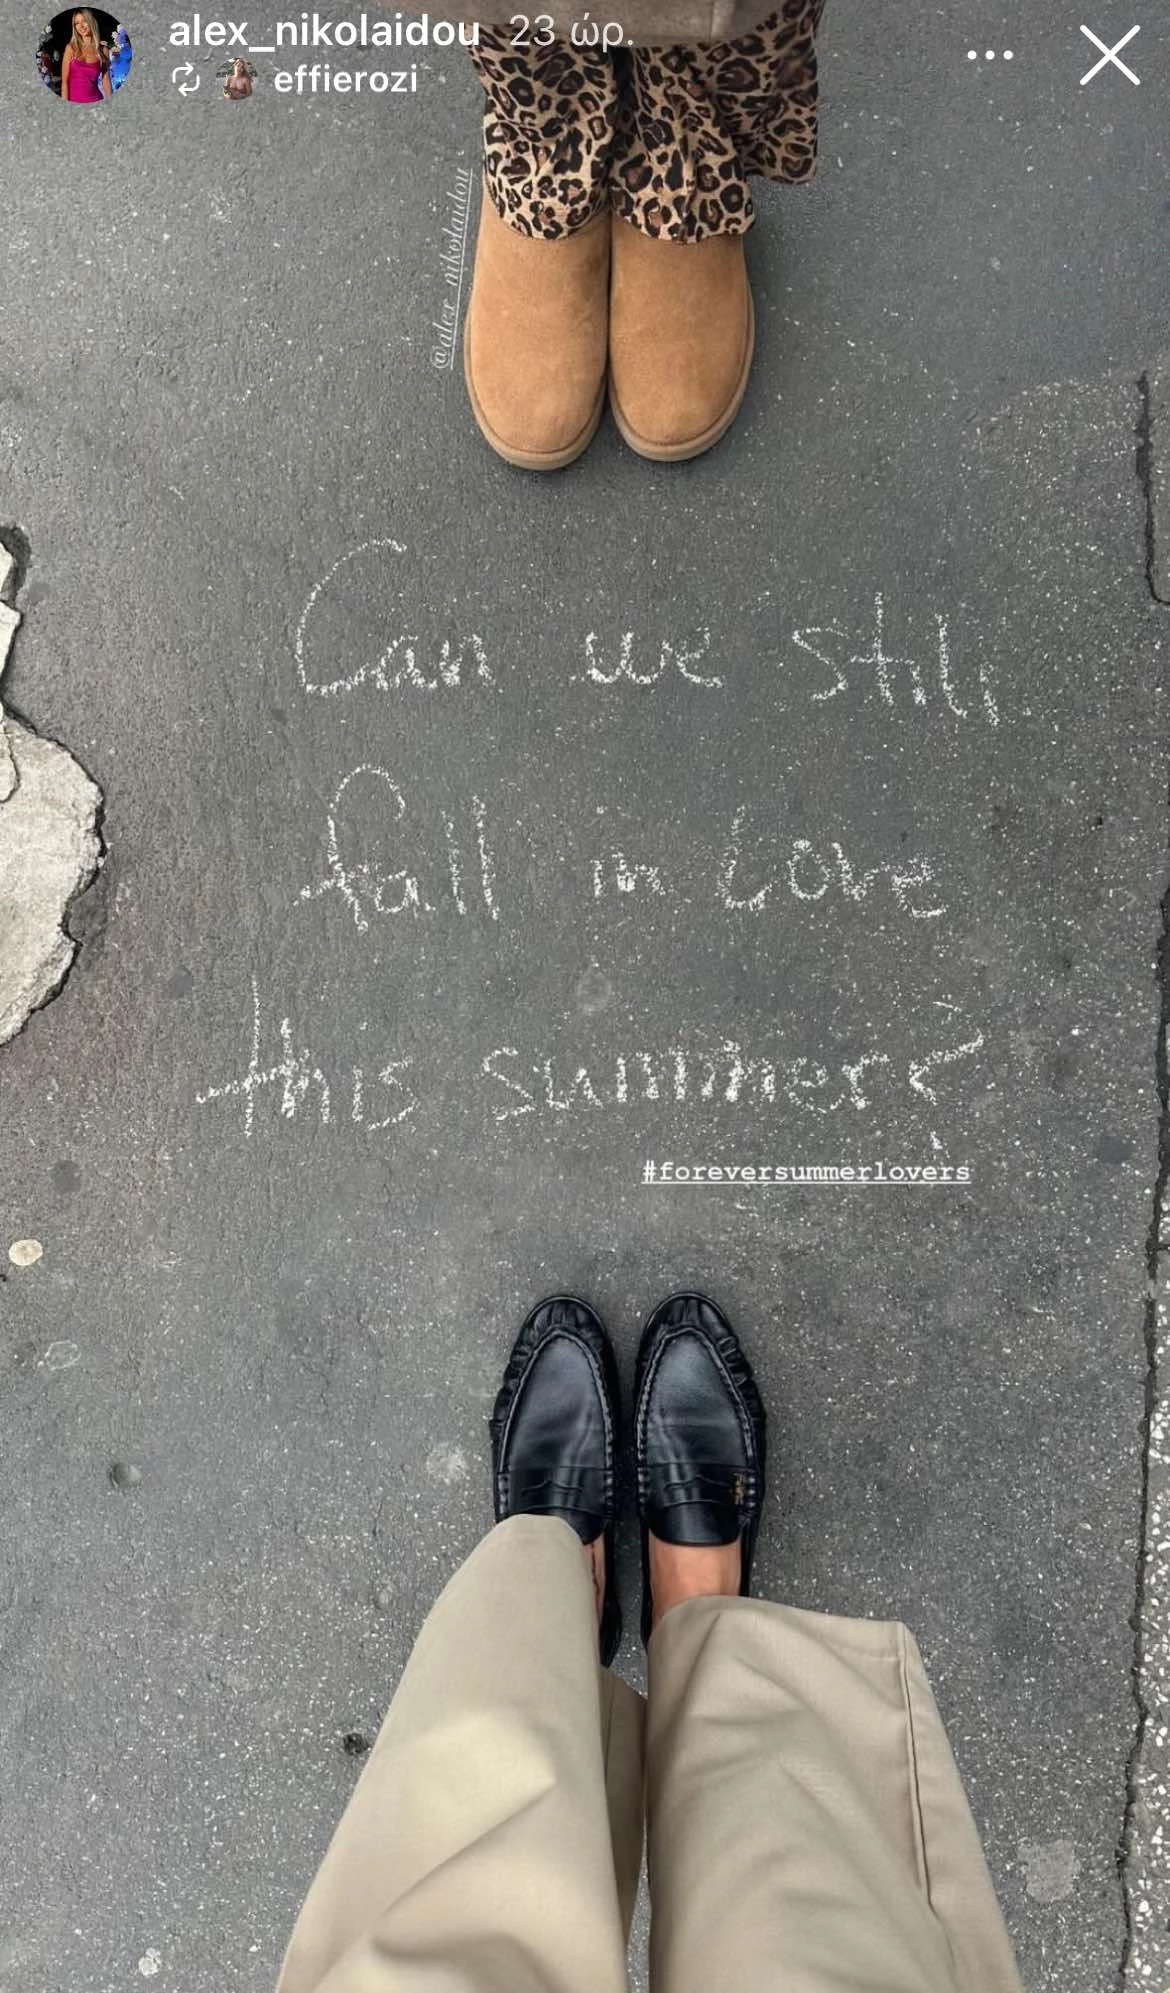 alex_nikolaidou 23 ώρ.
effierozi
@alex_nikolaidou
Can we still
fall in love
this summer?
#foreversummerlovers